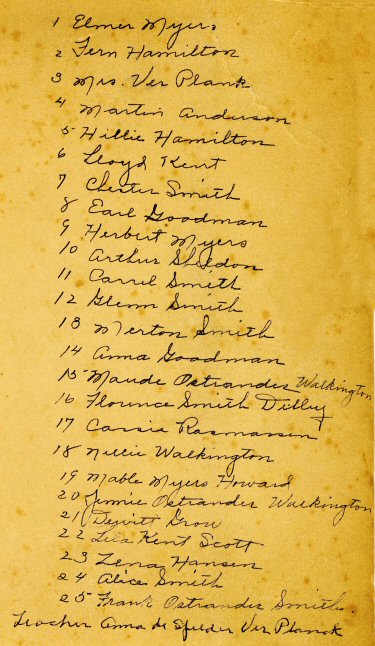 1 Elmer Myers
2 Fern Hamilton
3 Mrs. Ver Plank
4 Martin Anderson
5 Hillie Hamilton
6 Lloyd Kent
7 Chester Smith
8 Earl Goodman
9 Herbert Myers
10 Arthur Sheldon
11 Carrel Smith
12 Glenn Smith
13 Merton Smith
14 Anna Goodman
15 Maude Ostrander Walkington
16 Florence Smith Dilley
17 Cassie Rasmussen
18 Nellie Walkington
19 Mable Myers Howard
20 Jennie Ostrander Walkington
21 Dewitt Grow
22 Lila Kent Scott
23 Lena Hansen
24 Alice Smith
25 Frank Ostrander Smith
Teacher Anna de Spelder Ver Planck